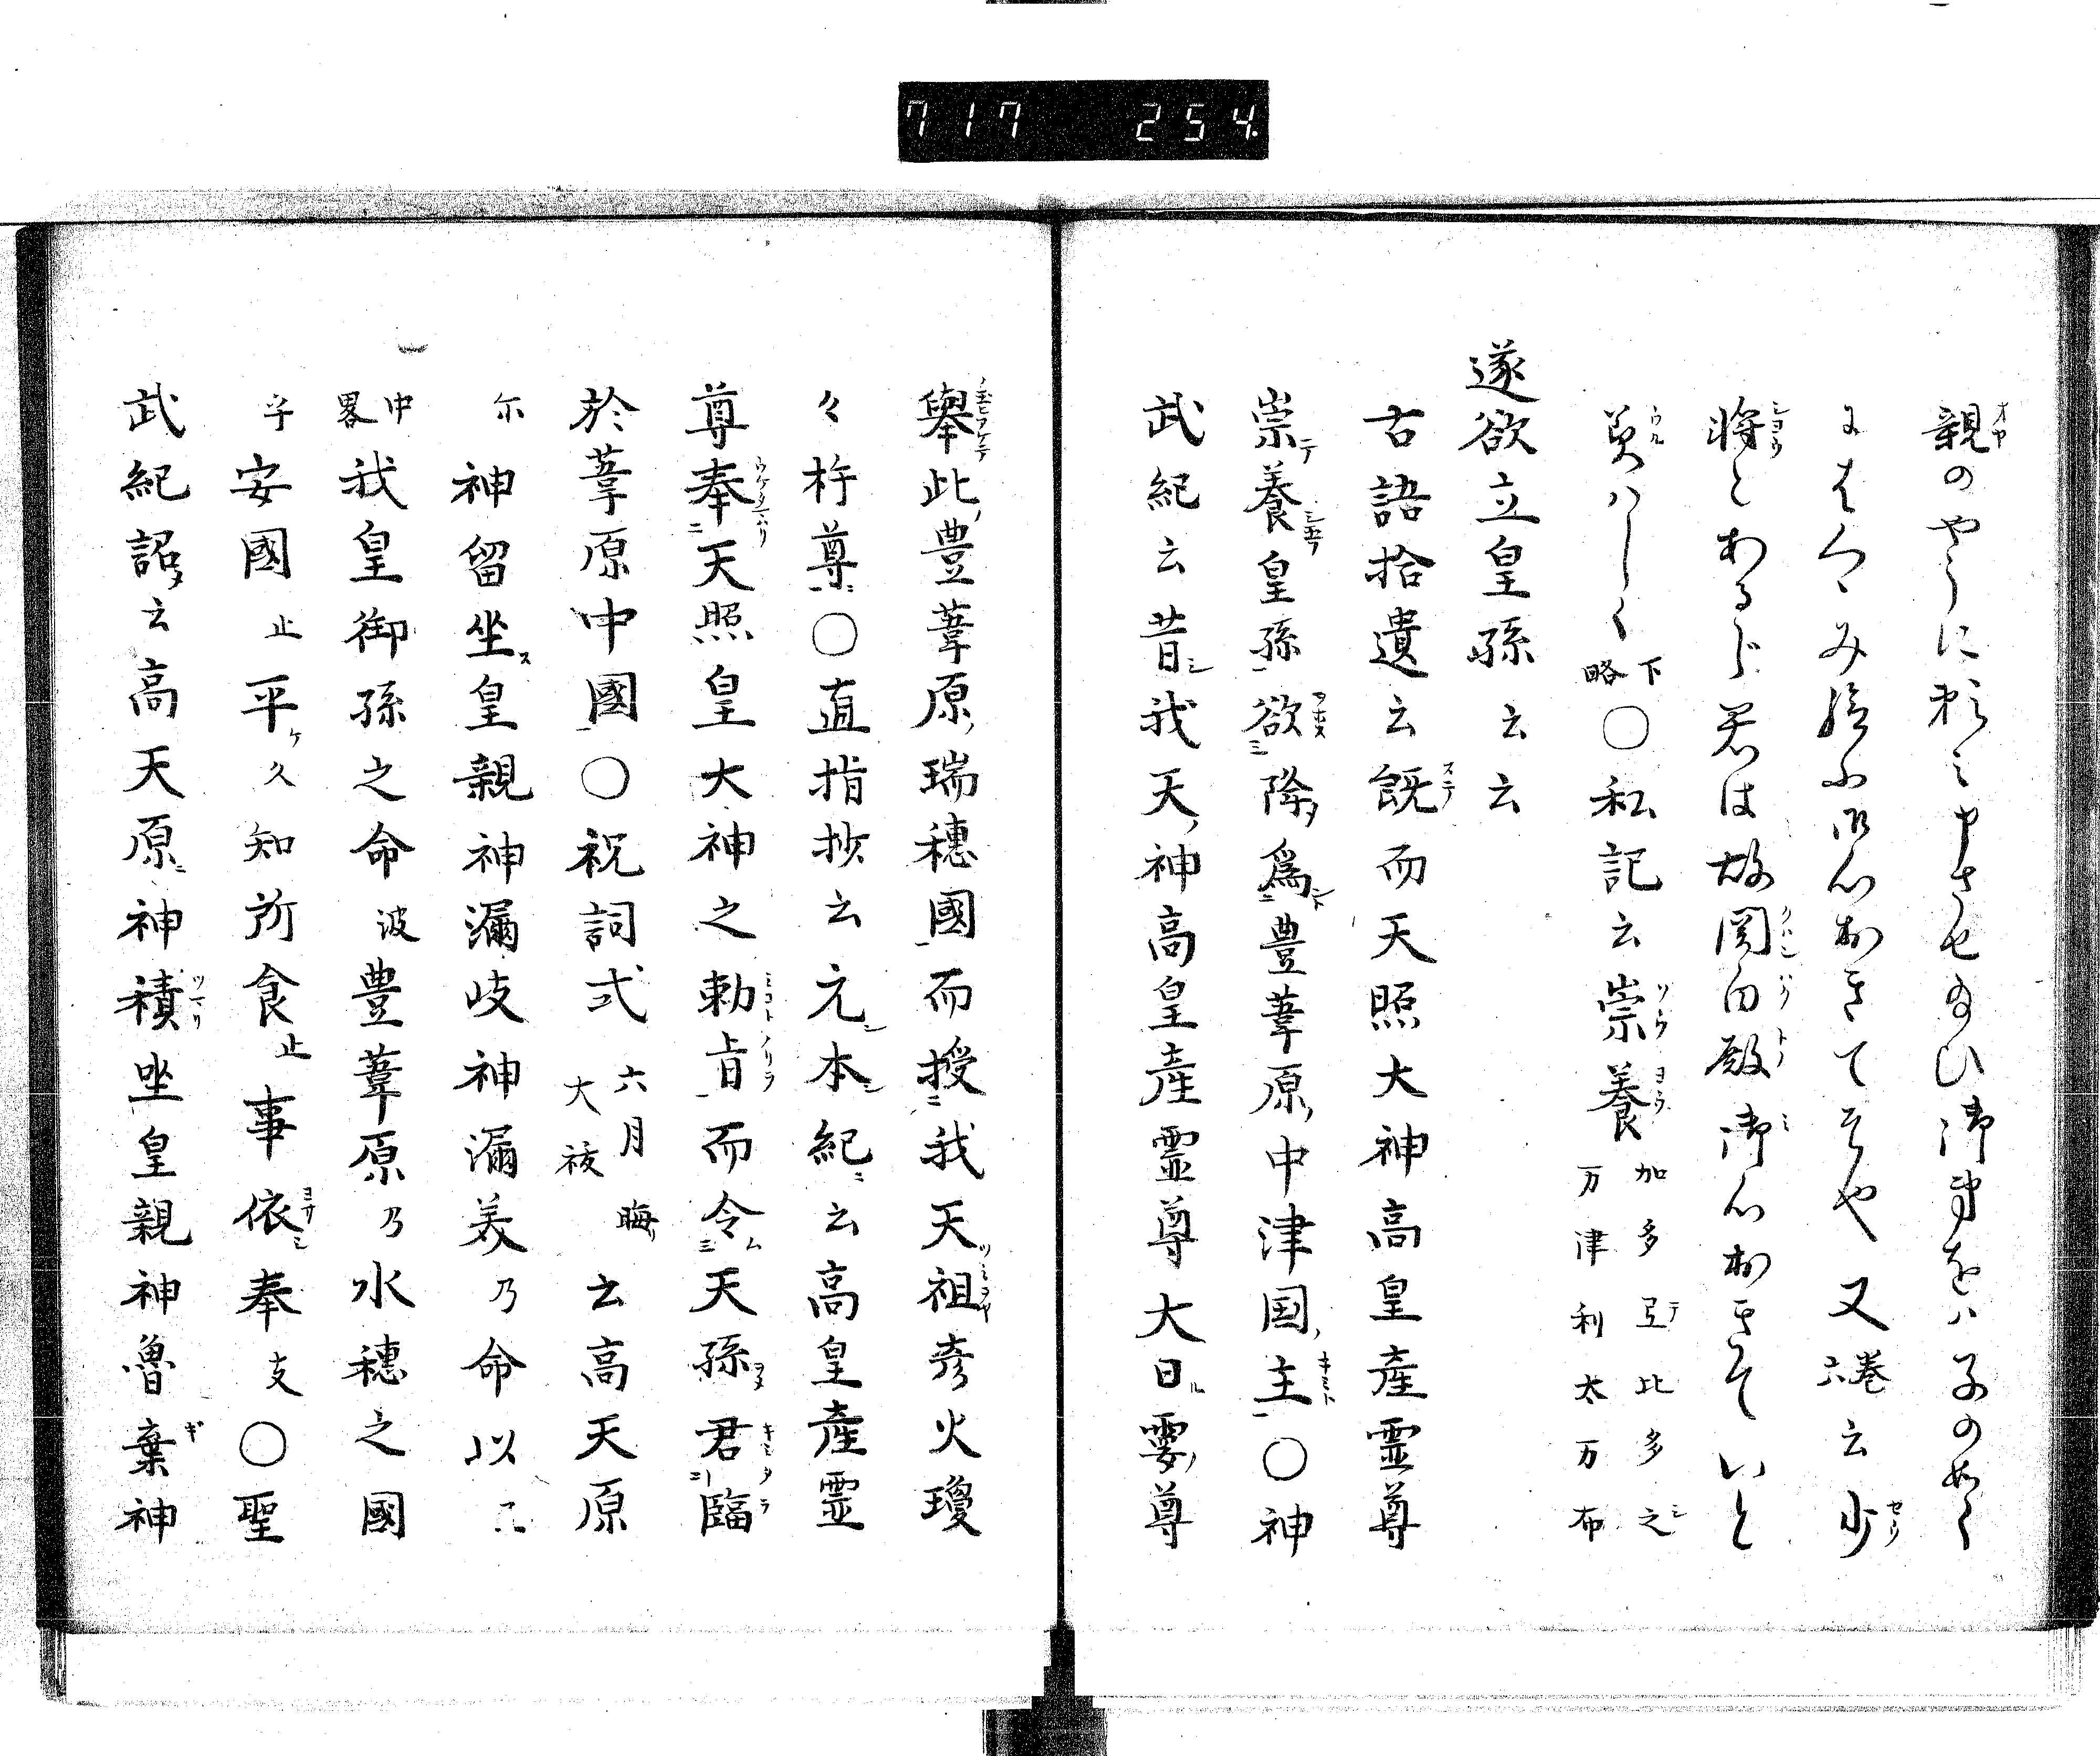 717 254
親のやうに頼み申させ給ひ御身をハ子の如く
にはくゝみ給ふ御心おきてそや又六巻云少
将とあるらん君は故関白殿御心おきそていと
美ハしく下略〇私記云崇養加多弖比多之万津利太万布
遂欲立皇孫云云
古語拾遺云既而天照大神高皇産霊尊
崇養皇孫欲降為豊葦原中津国主〇神
武紀云昔我天神高皇産霊尊大日孁尊
擧此豊葦原瑞穂國而授我天祖彦火瓊
々杵尊〇直指抄云元本紀云高皇産霊
尊奉天照皇大神之勅旨而令天孫君臨
於葦原中國〇祝詞式六月晦大祓云高天原
尓神留坐皇親神漏岐神漏美乃命以
中畧我皇御孫之命波豊葦原乃水穂之國
乎安國止平久知所食止事依奉支〇聖
武紀詔云高天原神積坐皇親神魯棄神